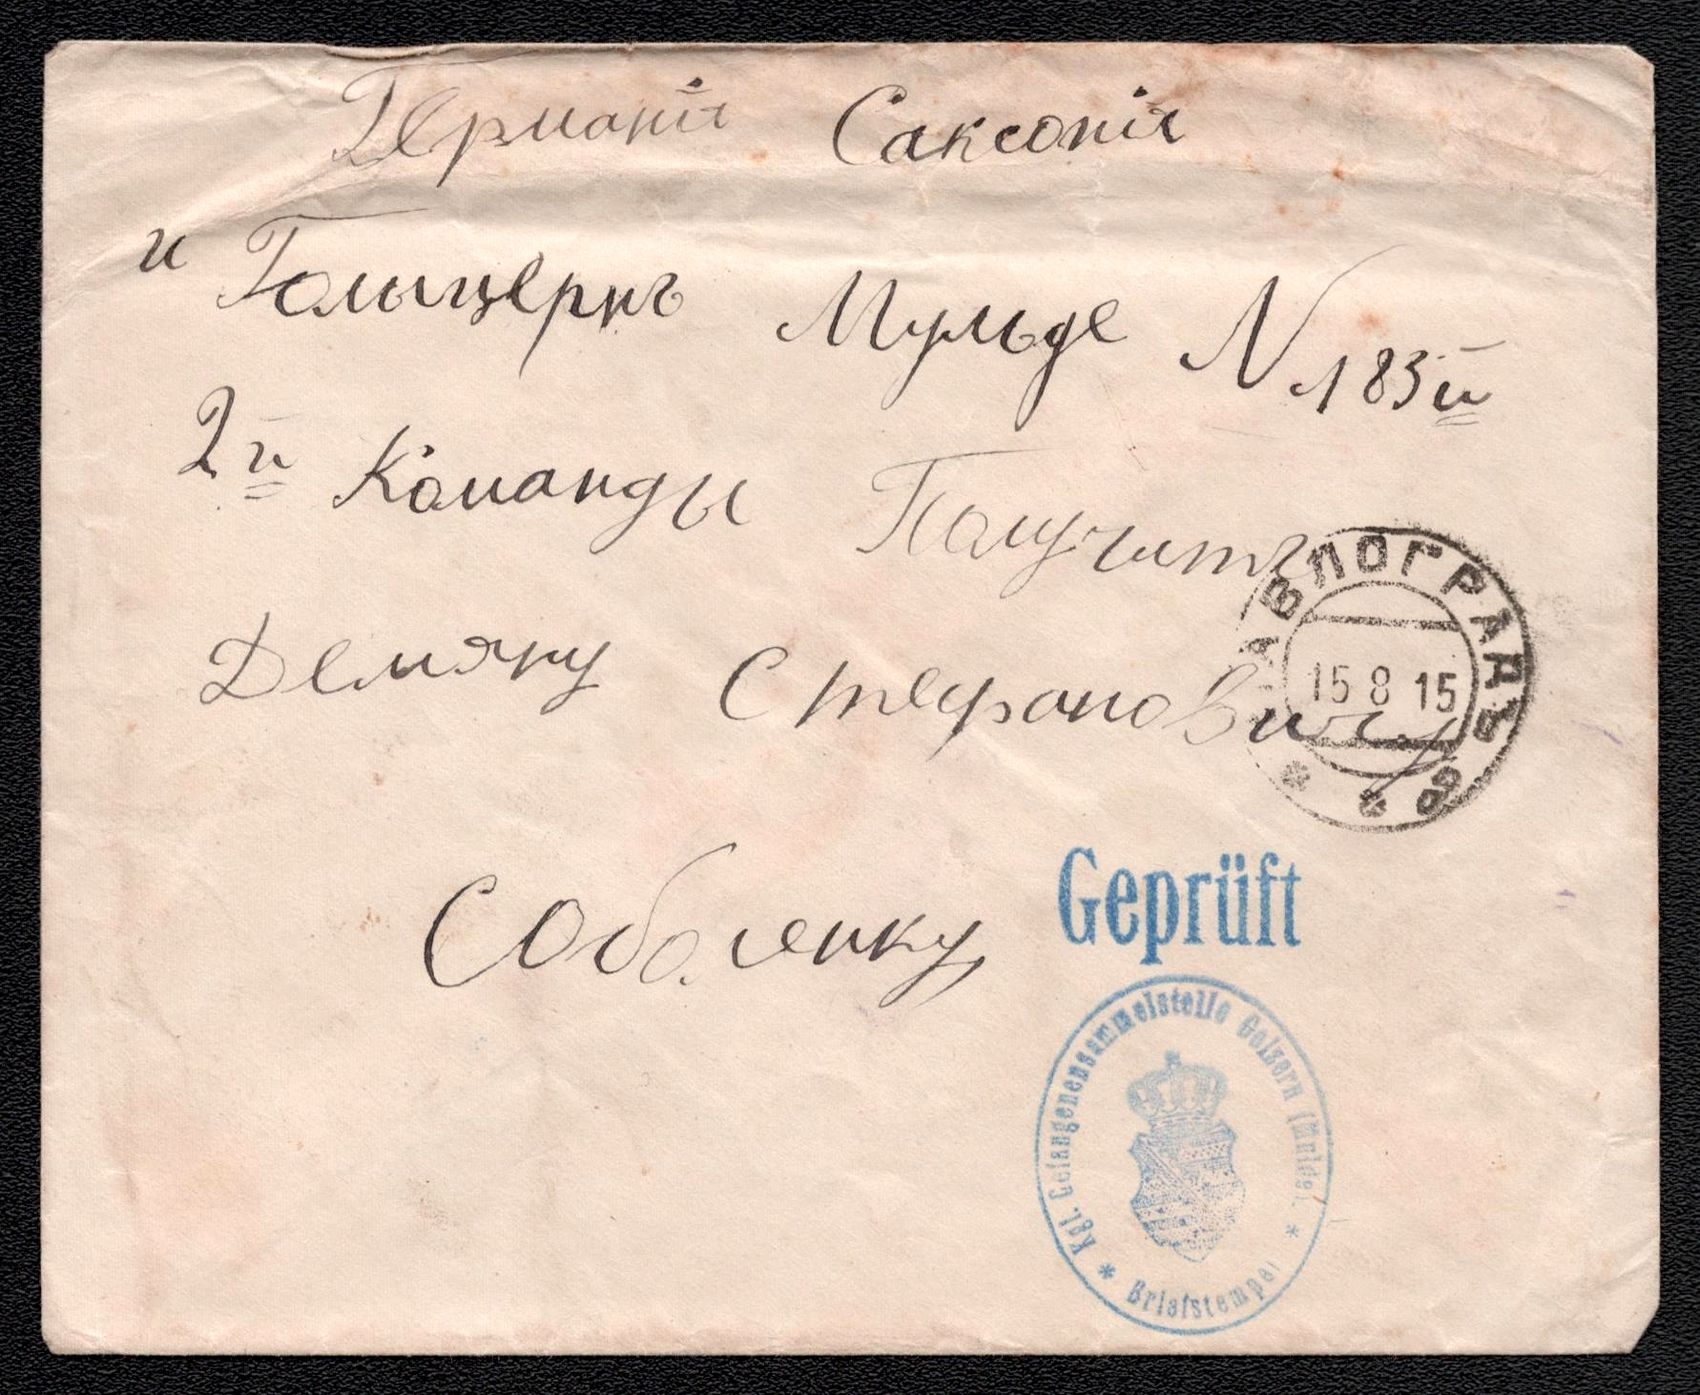 Германія Саксонія
и Гольцернъ Мульде N 183й
2й Команды Получить
Демяну Стефановичу
Соболенку
ПАВЛОГРАДЪ
15 8 15
Geprüft
Kgl. Gefangenensammelstelle Golzern (Mulde).
* Briefstempel *